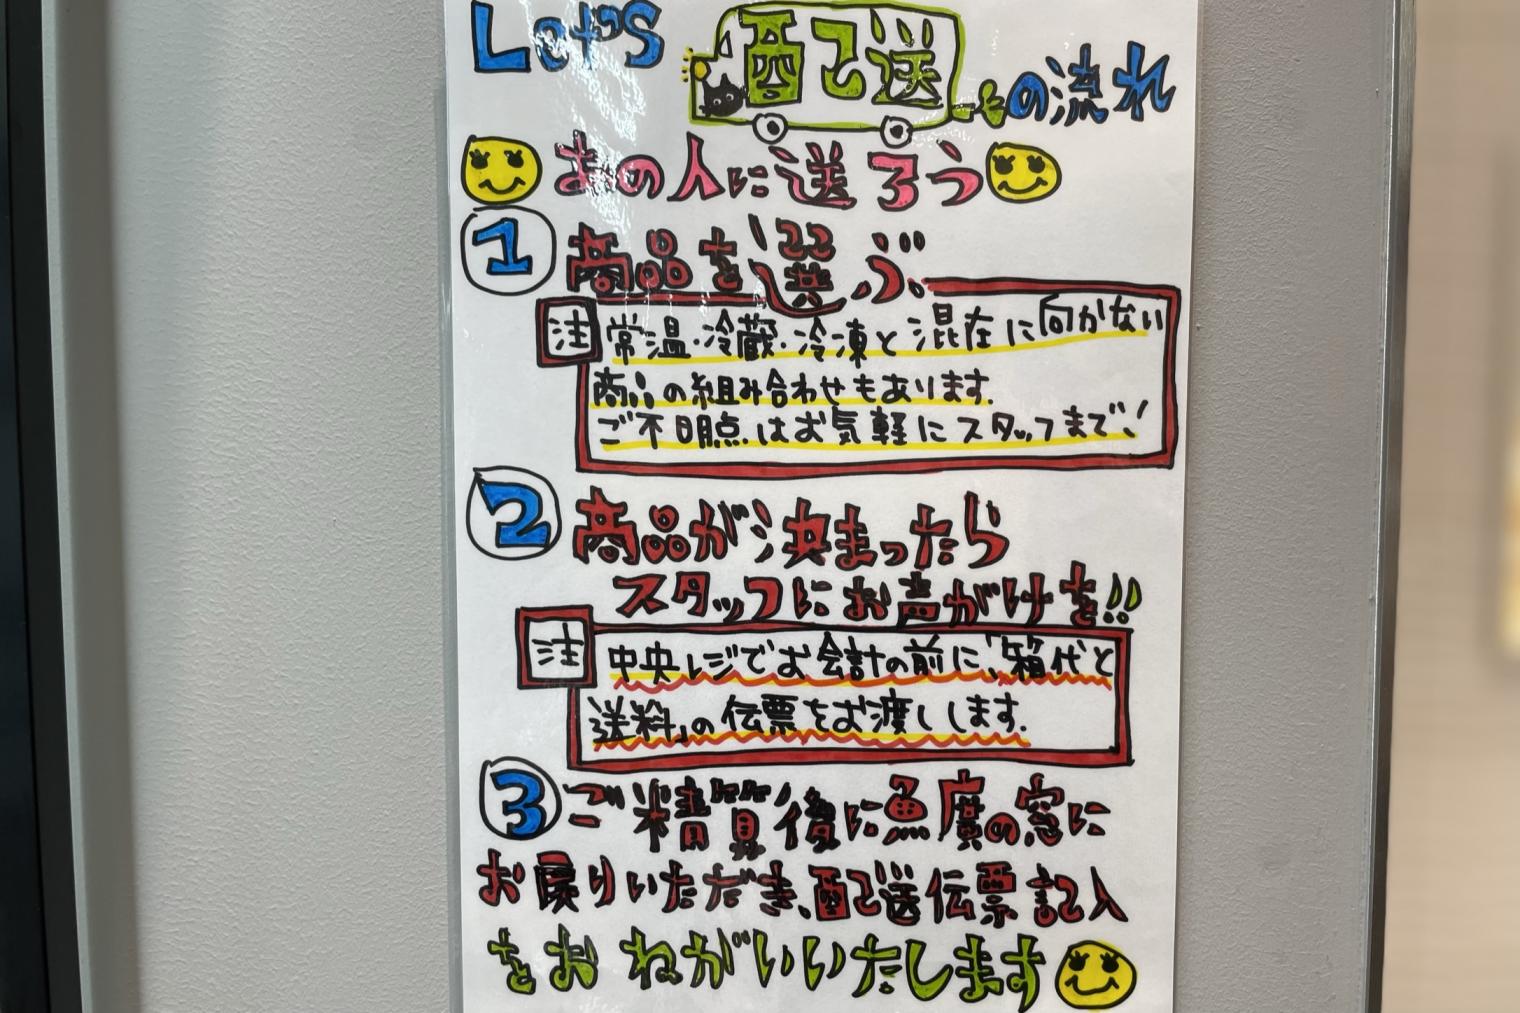 Let's 配送の流れ
あの人に送ろう
1 商品を選ぶ
注 常温・冷蔵・冷凍と混在に向かない
商品の組み合わせもあります。
ご不明点はお気軽にスタッフまで!
2 商品が決まったら
スタッフにお声がけを!!
注 中央レジでお会計の前に、「箱代と
送料」の伝票をお渡しします。
3 ご精算後に魚度の窓に
お戻りいただき、配送伝票記入
をおねがいいたします